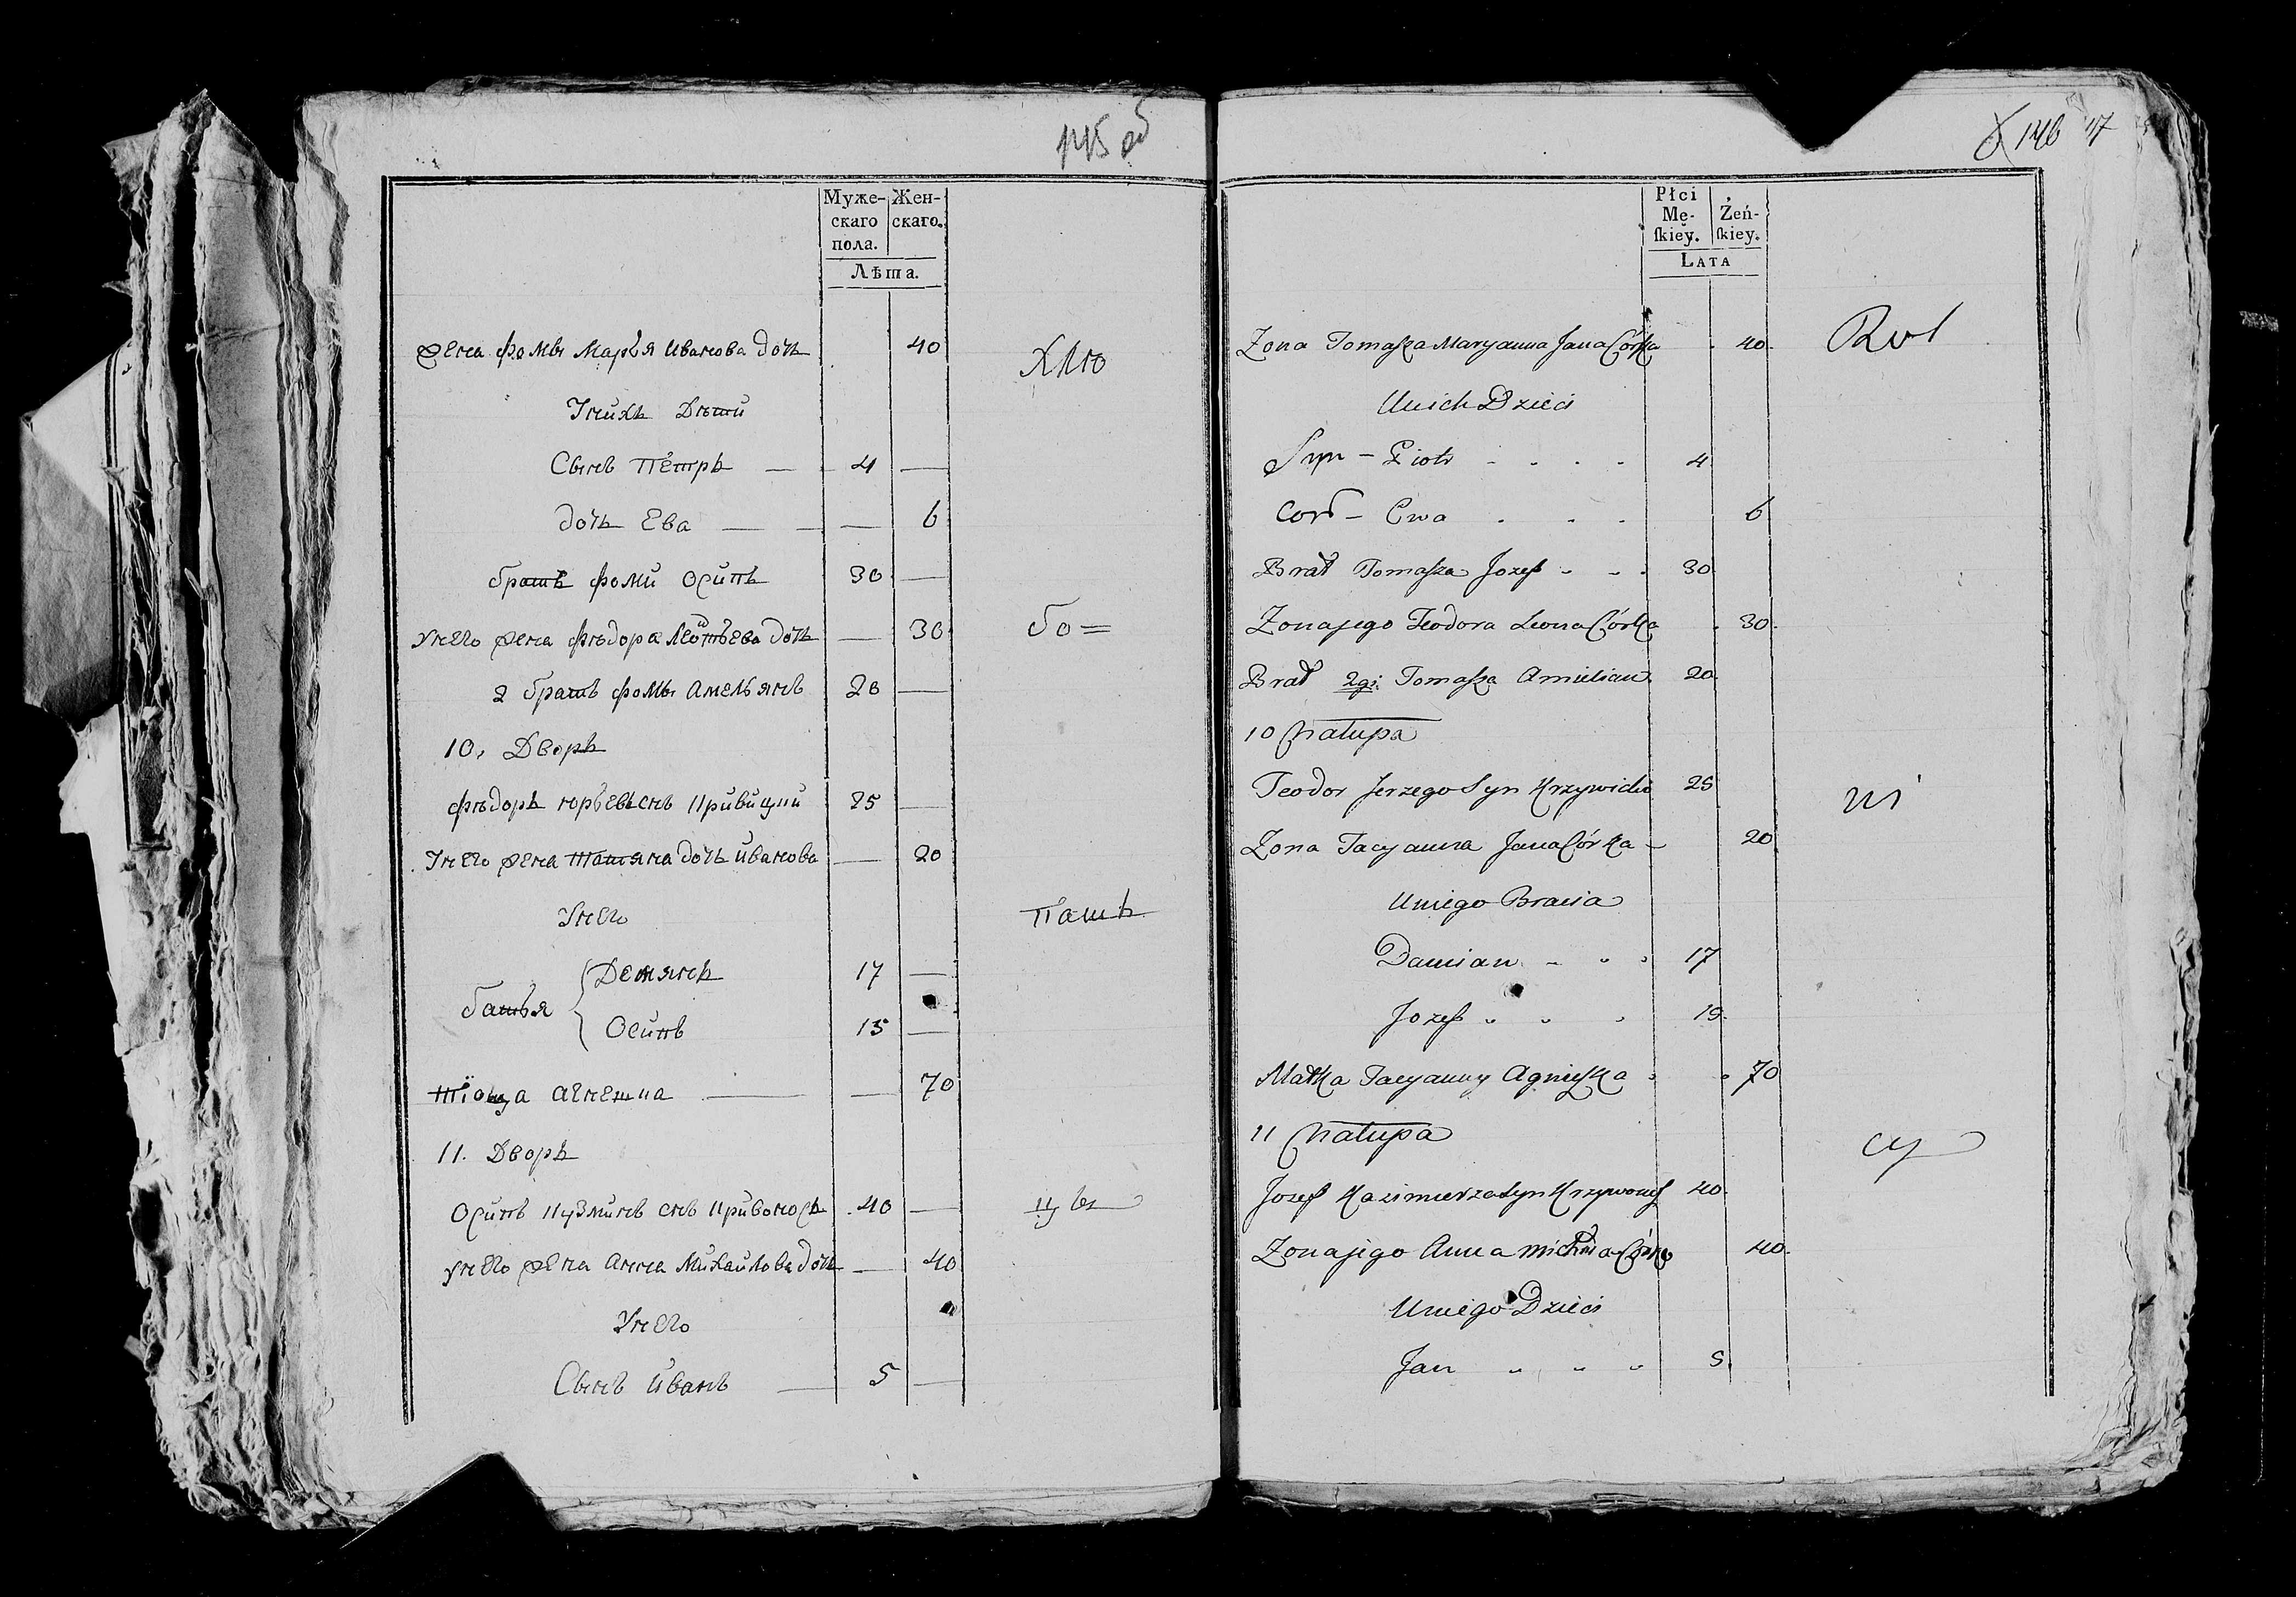 145 об
Муже-
скаго
пола.
Жен-
скаго.
Лѣта.
жена фомы Марья Иванова дочь 40
Хлѣ
Унихъ Дѣти
Сынъ Пётръ — 4 —
дочь Ева — — 6
братъ фоми Осипъ 30 —
унего жена фѣдора Леотьева дочь — 30
бо=
2 братъ фомы Амельянъ 20 —
10, Дворъ
фѣдоръ юрьевъ снъ Кривицкий 25 —
Унего жена Татяна дочь иванова — 20
Унего
пашъ
батья { Демянъ 17 —
Осипъ 15 —
тіоща агнешка — 70
11. Дворъ
Осипъ Кузминъ снъ Кривоносъ 40 —
унего жена Анна Михайлова дочь — 40
Унего
Сынъ иванъ — 5 —
146 17
Płci
Mę-
ſkiey.
Żeń-
ſkiey.
Lata
Zona Tomaſza Maryanna Jana Córka 40
Rol
Unich Dzieci
Syn – Piotr 4
Cor – Ewa 6
Brat Tomaſza Jozef 30
Zona jego Teodora Leona Córka 30
Brat 2gi Tomaſza Amilian 20
10 Chałupa
Teodor Jerzego Syn Krzywicki 25
ni
Zona Tacyanna Jana Córka – 20
Uniego Bracia
Damian 17
Jozef 15
Matka Tacyanny Agnieſzka 70
11 Chałupa
cy
Jozef Kazimierza Syn Krzywonos 40
Zona jego Anna Michała Córka 40
Uniego Dzieci
Jan 5